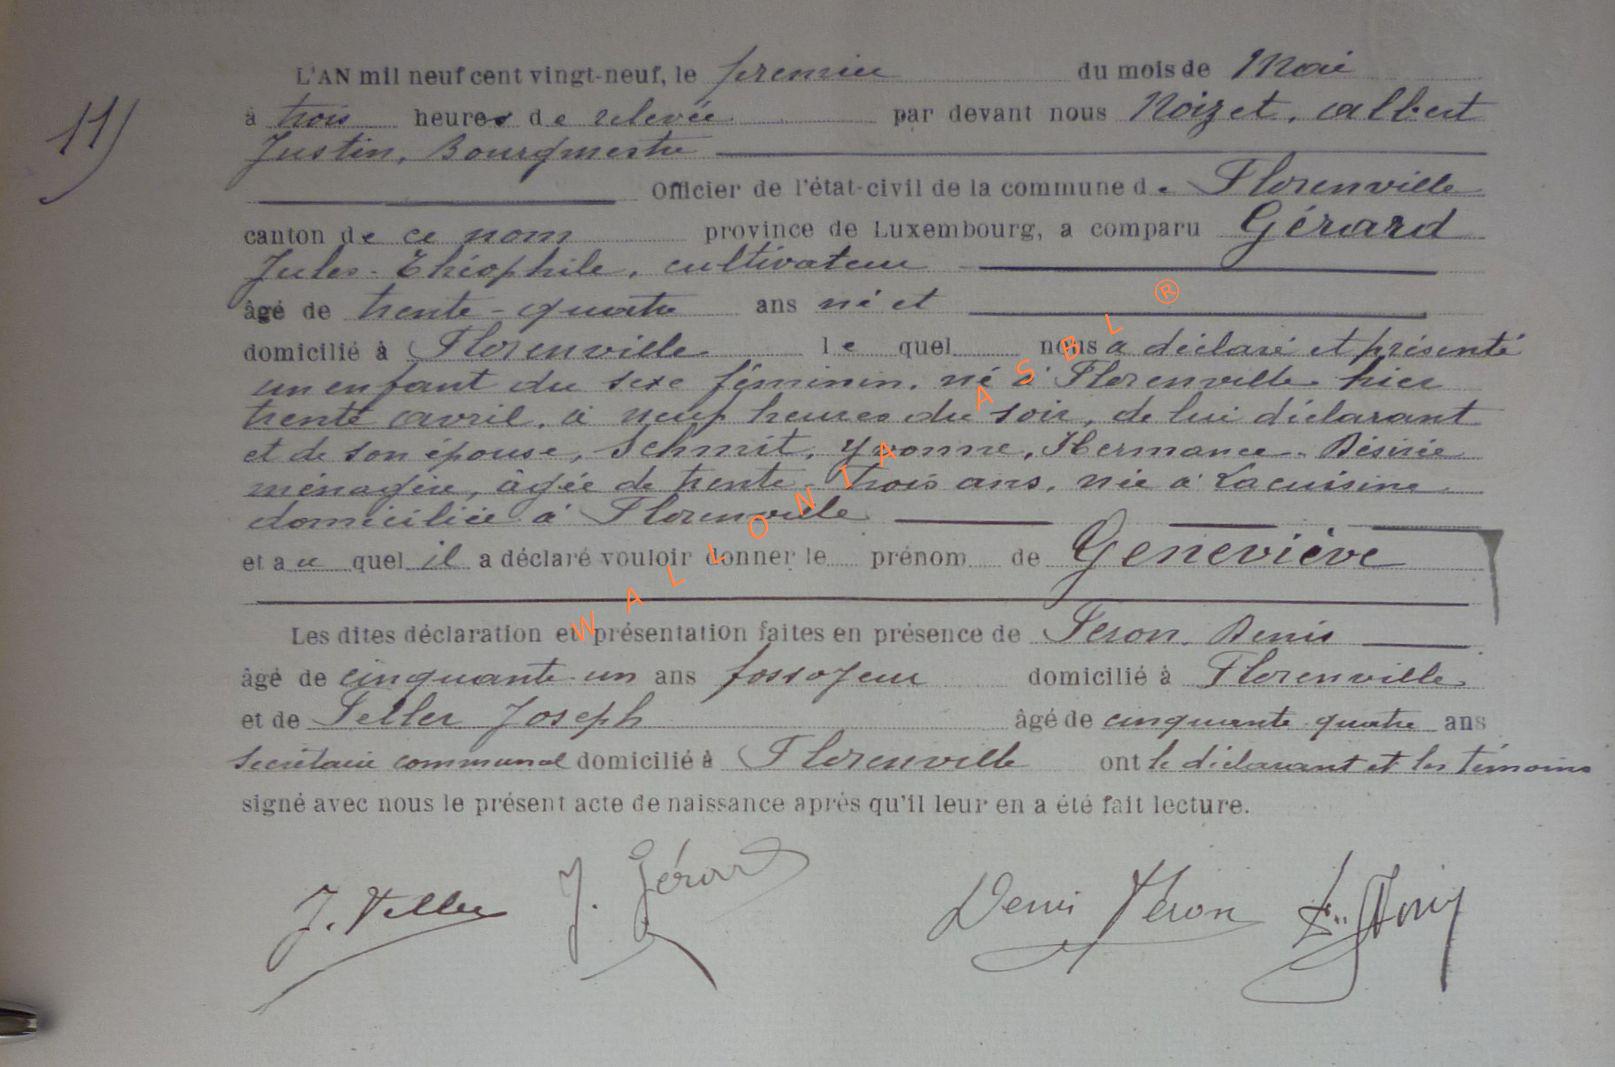 11)
L'AN mil neuf cent vingt-neuf, le premier du mois de Mai
à trois heures de relevée par devant nous Noizet, Albert
Justin, Bourgmestre
Officier de l'état-civil de la commune de Florenville
canton de ce nom province de Luxembourg, a comparu Gérard
Jules-Théophile, cultivateur
âgé de trente-quatre ans né et
domicilié à Florenville lequel nous a déclaré et présenté
un enfant du sexe féminin, né à Florenville hier
trente avril, à neuf heures du soir, de lui déclarant
et de son épouse, Schmit, Yvonne, Hermance-Désirée
ménagère, âgée de trente-trois ans, née à Lacuisine
domiciliée à Florenville
et au quel il a déclaré vouloir donner le prénom de Geneviève
Les dites déclaration et présentation faites en présence de Feron, Denis
âgé de cinquante-un ans fossoyeur domicilié à Florenville
et de Feller Joseph âgé de cinquante quatre ans
secrétaire communal domicilié à Florenville ont le déclarant et les témoins
signé avec nous le présent acte de naissance après qu'il leur en a été fait lecture.
J. Feller J. Gérard Denis Feron
WALLONIA ASBL ®